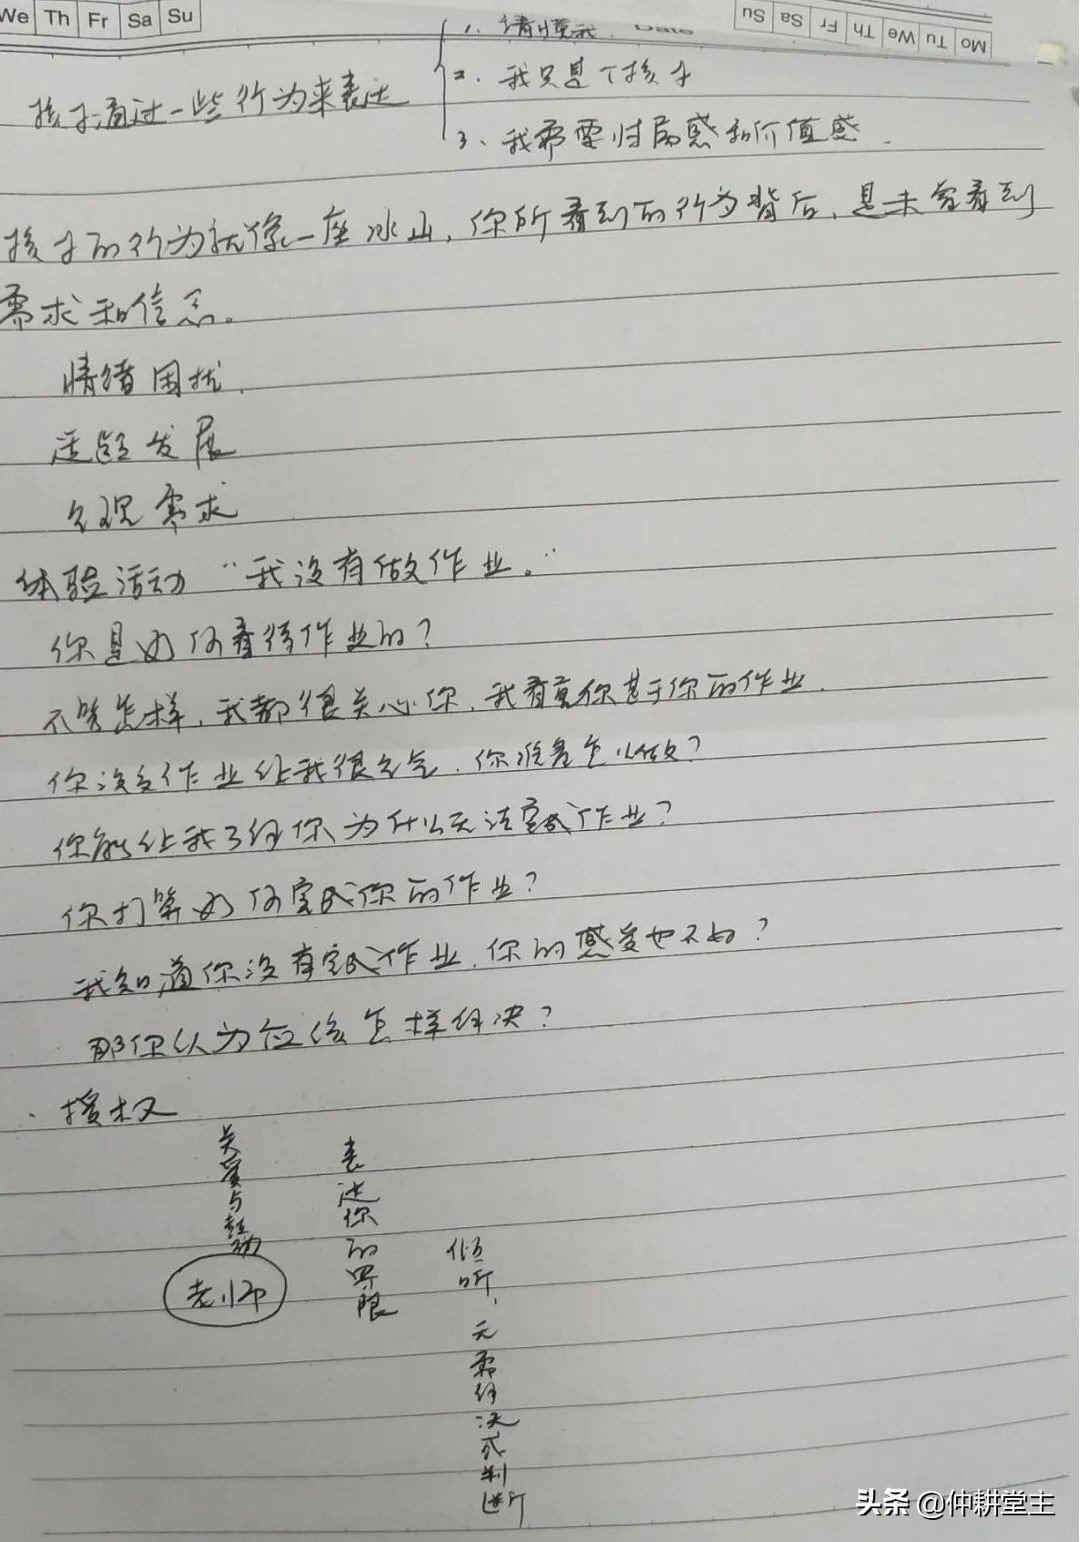 We Th Fr Sa Su
Mo Tu We Th Fr Sa Su
Date
孩子通过一些行为来表达
1、请懂我.
2、我只是个孩子
3、我需要归属感和价值感.
孩子的行为就像一座冰山,你所看到的行为背后,是未曾看到
需求和信念。
情绪困扰.
话题发展
需求
体验活动 “我没有做作业。”
你是如何看待作业的?
不管怎样,我都很关心你,我看重你甚于你的作业.
你没交作业让我很生气.你准备怎么做?
你能让我了解你为什么无法完成作业?
你打算如何完成你的作业?
我知道你没有完成作业.你的感受也不好?
那你认为应该怎样解决?
·授权
关爱与鼓励
老师
表达你的界限
倾听,无需解决或判断
头条 @仲耕堂主